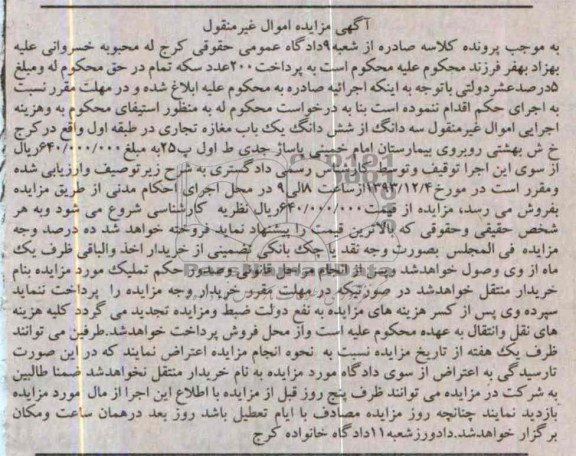 آگهی مزایده اموال غیرمنقول
به موجب پرونده کلاسه صادره از شعبه۹دادگاه عمومی حقوقی کرج له محبوبه خسروانی علیه
بهزاد بهفر فرزند محکوم علیه محکوم است به پرداخت۲۰۰عدد سکه تمام در حق محکوم له ومبلغ
۵درصدعشردولتی باتوجه به اینکه اجرائیه صادره به محکوم علیه ابلاغ شده و در مهلت مقرر نسبت
به اجرای حکم اقدام ننموده است بنا به درخواست محکوم له به منظور استیفای محکوم به وهزینه
اجرایی اموال غیرمنقول سه دانگ از شش دانگ یک باب مغازه تجاری در طبقه اول واقع درکرج
خ ش بهشتی روبروی بیمارستان امام خمینی پاساژ جدی ط اول پ۲۵به مبلغ ۶۴۰/۰۰۰/۰۰۰ریال
از سوی این اجرا توقیف وتوسط کارشناس رسمی دادگستری به شرح زیرتوصیف وارزیابی شده
ومقرر است در مورخ۱۳۹۳/۱۲/۴ازساعت ۸الی۹ در محل اجرای احکام مدنی از طریق مزایده
بفروش می رسد، مزایده از قیمت۶۴۰/۰۰۰/۰۰۰ریال نظریه کارشناسی شروع می شود وبه هر
شخص حقیقی وحقوقی که بالاترین قیمت را پیشنهاد نماید فروخته خواهد شد ده درصد وجه
مزایده فی المجلس بصورت وجه نقد یا چک بانکی تضمینی از خریدار اخذ والباقی ظرف یک
ماه از وی وصول خواهدشد وپس از انجام مراحل قانونی وصدور حکم تملیک مورد مزایده بنام
خریدار منتقل خواهدشد در صورتیکه در مهلت مقرر خریدار وجه مزایده را پرداخت ننماید
سپرده وی پس از کسر هزینه های مزایده به نفع دولت ضبط ومزایده تجدید می گردد کلیه هزینه
های نقل وانتقال به عهده محکوم علیه است واز محل فروش پرداخت خواهدشد.طرفین می توانند
ظرف یک هفته از تاریخ مزایده نسبت به نحوه انجام مزایده اعتراض نمایند که در این صورت
تارسیدگی به اعتراض از سوی دادگاه مورد مزایده به نام خریدار منتقل نخواهدشد ضمنا طالبین
به شرکت در مزایده می توانند ظرف پنج روز قبل از مزایده با اطلاع این اجرا از مال مورد مزایده
بازدید نمایند چنانچه روز مزایده مصادف با ایام تعطیل باشد روز بعد درهمان ساعت ومکان
برگزار خواهدشد.دادورزشعبه۱۱دادگاه خانواده کرج